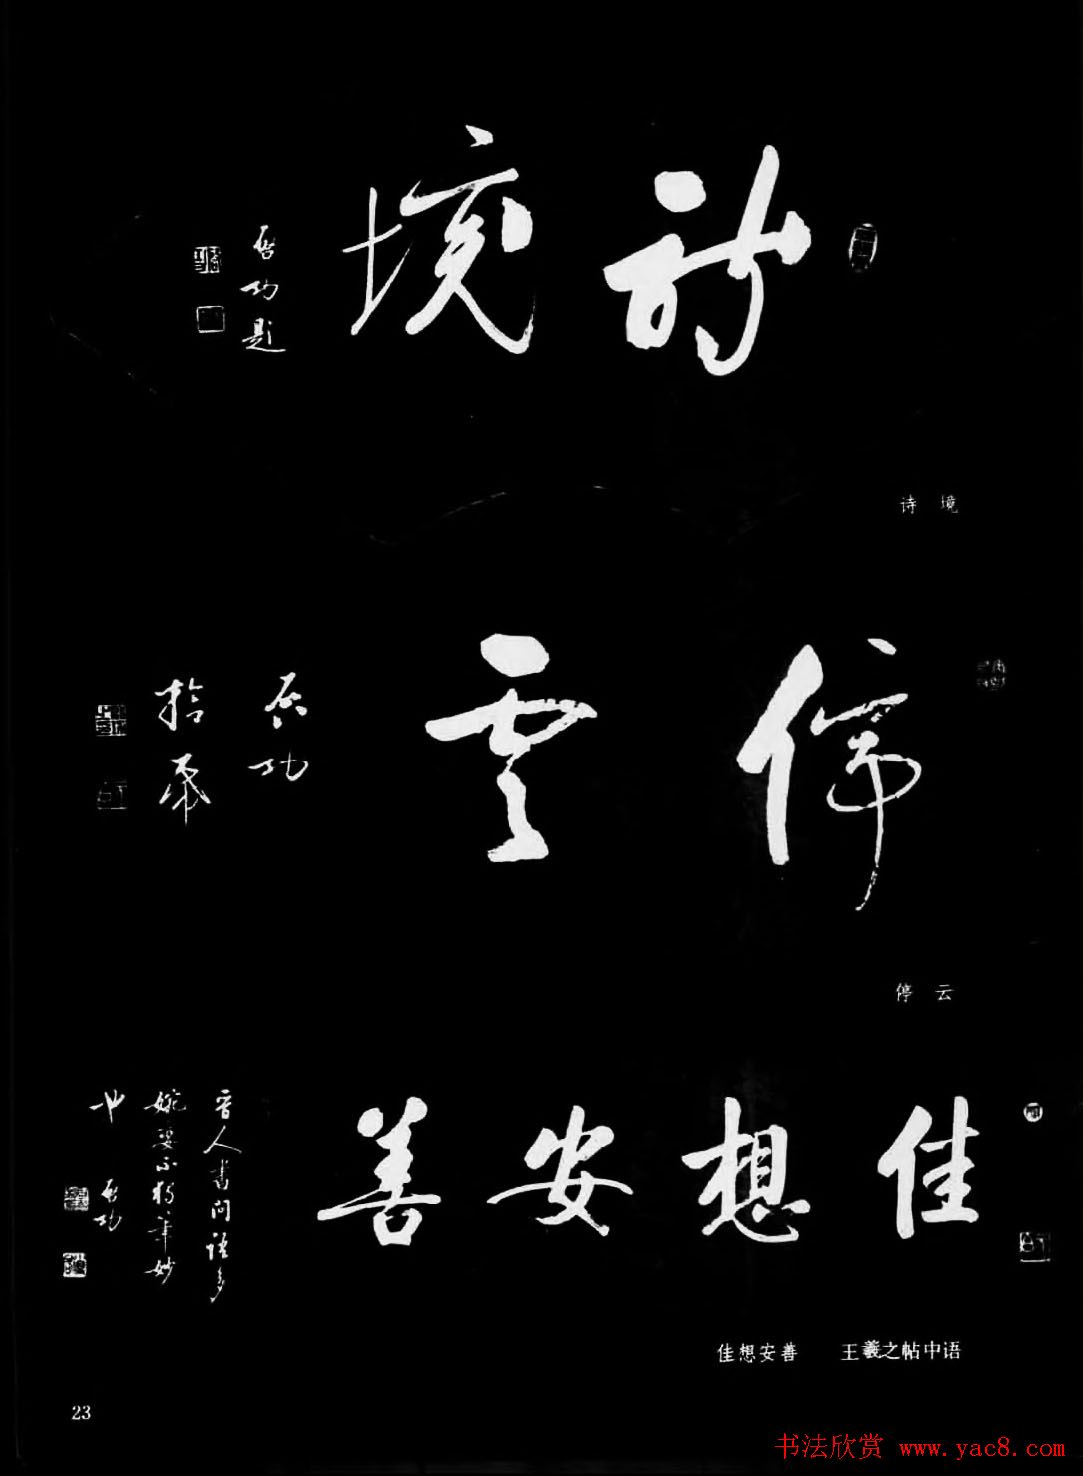 詩境
启功題
诗 境
停雲
启功
拾笔
停 云
佳想安善
晋人書问語多
婉
不猶筆妙
也 启功
佳想安善 王羲之帖中语
23
书法欣赏 www.yac8.com